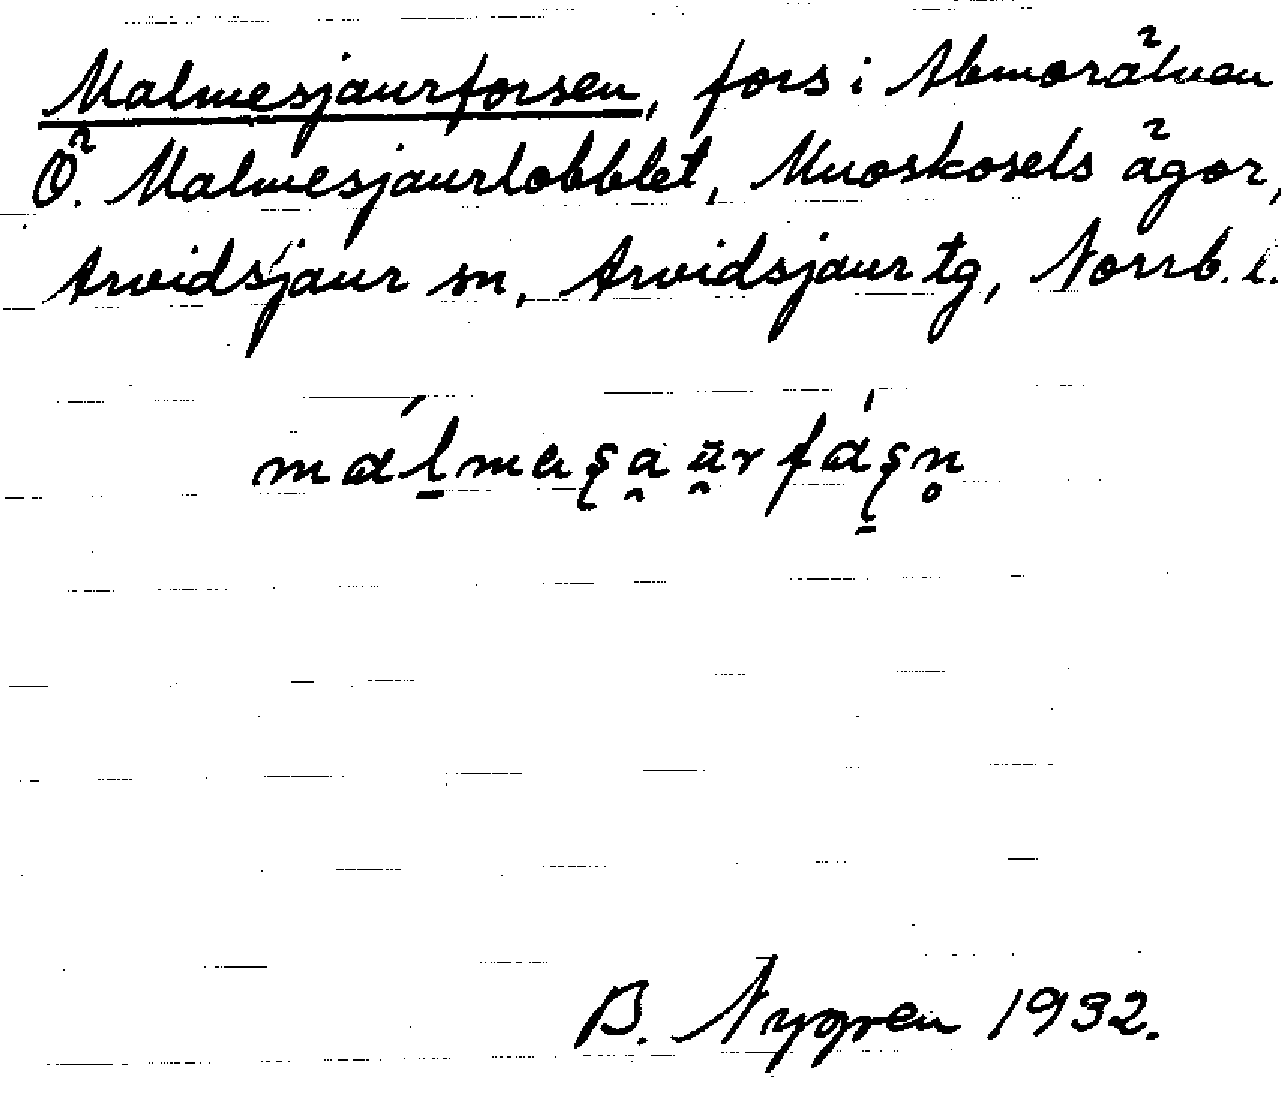 Malmesjaurforsen, fors i Abmorälven
Ö. Malmesjaurlobblet, Muoskosels ägor,
Arvidsjaur sn, Arvidsjaur tg, Norrb. l.
B. Nygren 1932.